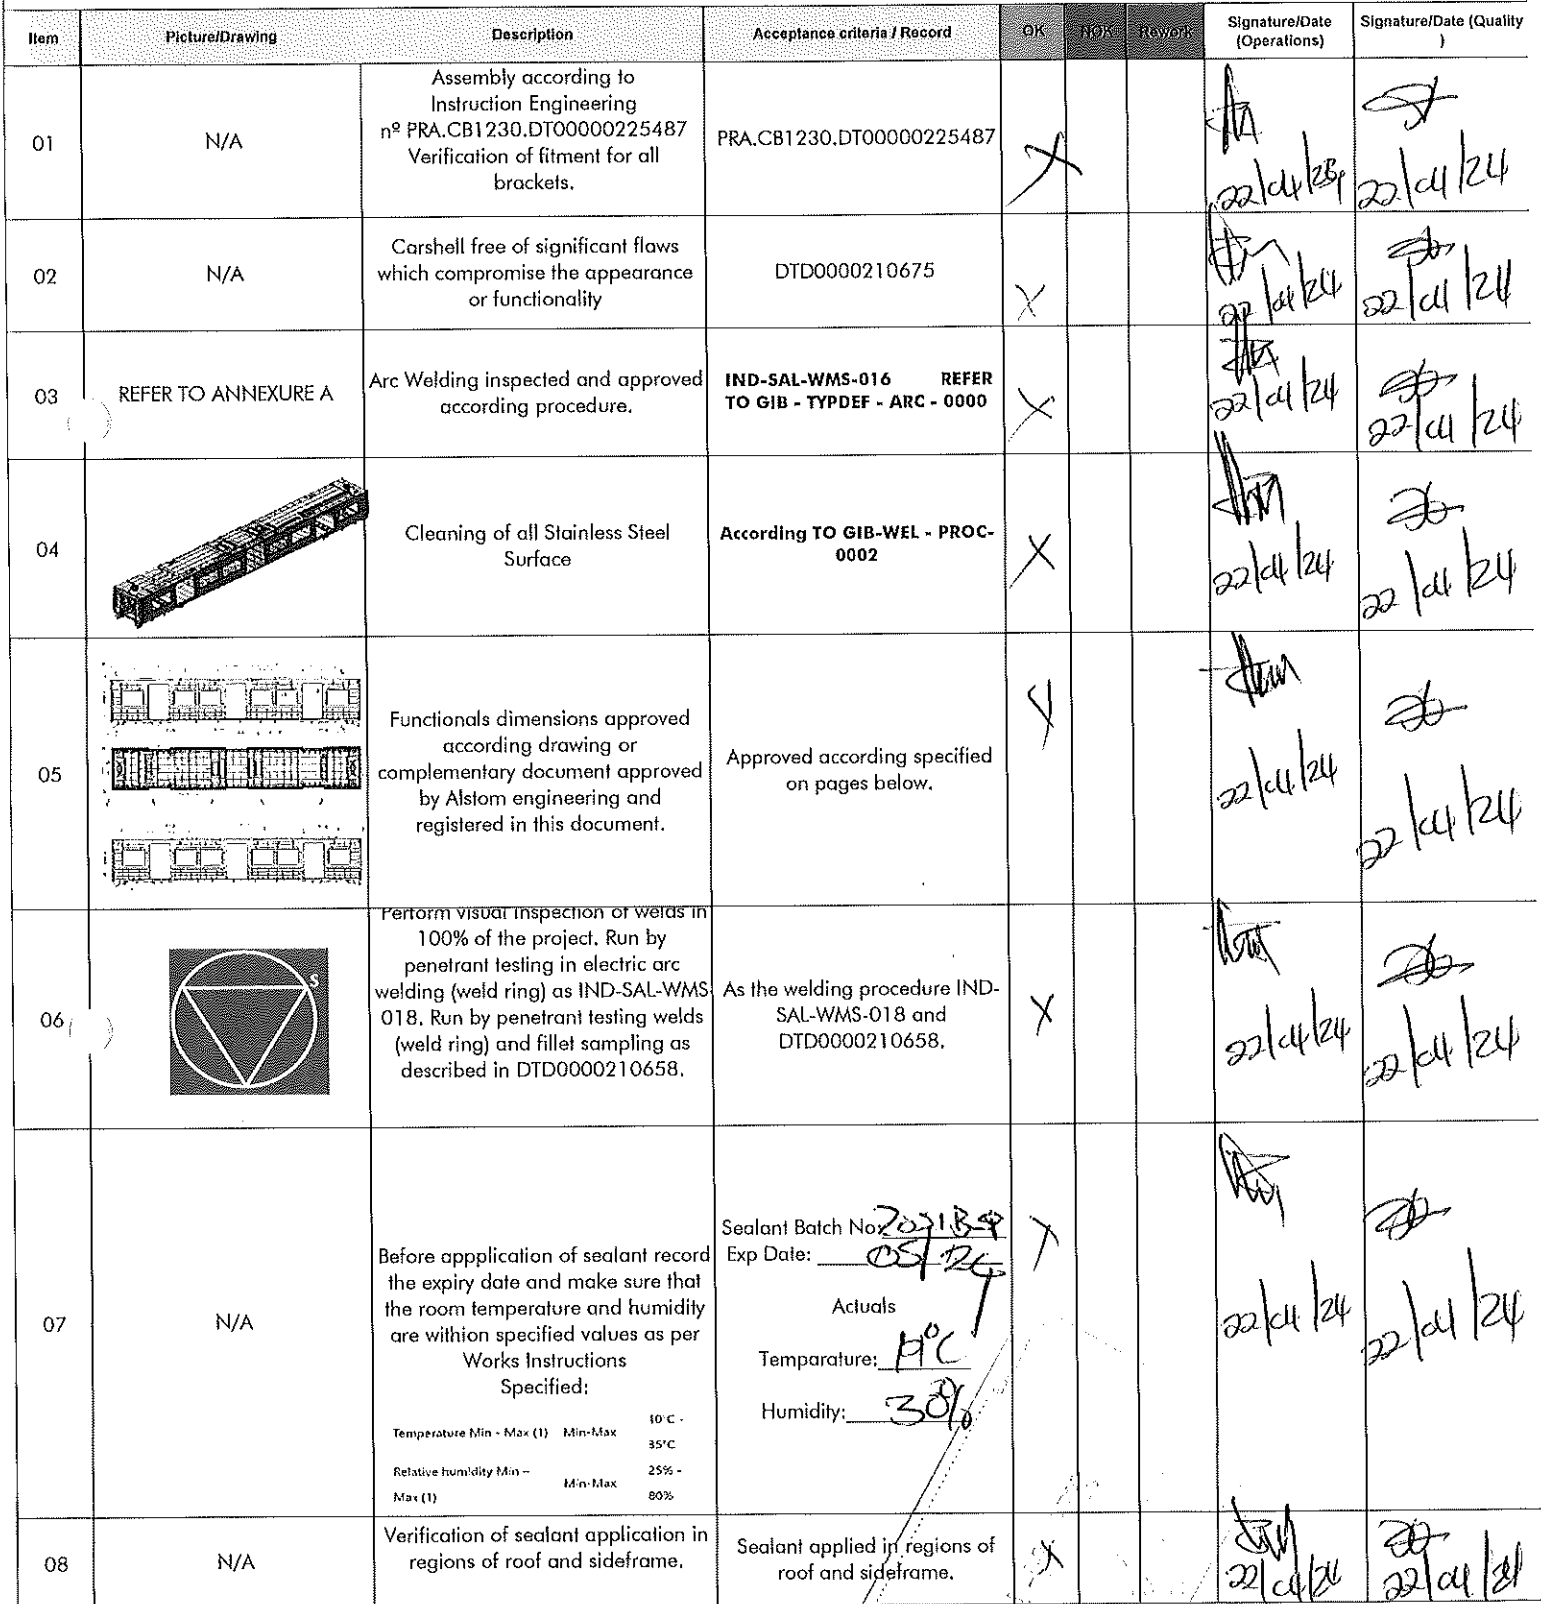 Item Picture/Drawing Description Acceptance criteria / Record OK NOK Rework Signature/Date (Operations) Signature/Date (Quality )
01 N/A
Assembly according to
Instruction Engineering
nº PRA.CB1230.DT00000225487
Verification of fitment for all
brackets.
PRA.CB1230.DT00000225487
X
22/04/24
22/04/24
02 N/A
Carshell free of significant flaws
which compromise the appearance
or functionality
DTD0000210675
X
22/04/24
22/04/24
03 REFER TO ANNEXURE A
Arc Welding inspected and approved
according procedure.
IND-SAL-WMS-016 REFER
TO GIB - TYPDEF - ARC - 0000
X
22/04/24
22/04/24
04
Cleaning of all Stainless Steel
Surface
According TO GIB-WEL - PROC-
0002
X
22/04/24
22/04/24
05
Functionals dimensions approved
according drawing or
complementary document approved
by Alstom engineering and
registered in this document.
Approved according specified
on pages below.
X
22/04/24
22/04/24
06
S
Perform visual inspection of welds in
100% of the project. Run by
penetrant testing in electric arc
welding (weld ring) as IND-SAL-WMS
018. Run by penetrant testing welds
(weld ring) and fillet sampling as
described in DTD0000210658.
As the welding procedure IND-
SAL-WMS-018 and
DTD0000210658.
X
22/04/24
22/04/24
07 N/A
Before appplication of sealant record
the expiry date and make sure that
the room temperature and humidity
are withion specified values as per
Works Instructions
Specified:
Temperature Min - Max (1) Min-Max 10°C -
35°C
Relative humidity Min –
Max (1) Min-Max 25% -
80%
Sealant Batch No:
Exp Date: 05/24
Actuals
Temparature: 19°C
Humidity: 30%
X
22/04/24
22/04/24
08 N/A
Verification of sealant application in
regions of roof and sideframe.
Sealant applied in regions of
roof and sideframe.
X
22/04/24
22/04/24